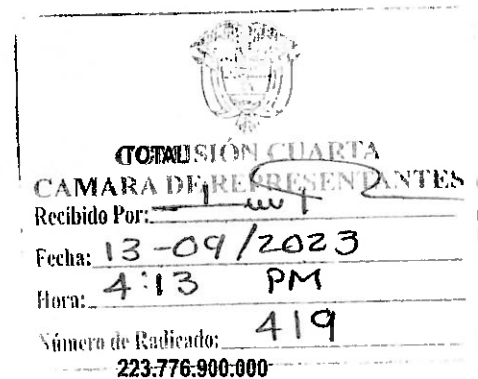 TOTAL
COMISIÓN CUARTA
CAMARA DE REPRESENTANTES
Recibido Por:
Fecha: 13-09/2023
Hora: 4:13 PM
Número de Radicado: 419
223.776.900.000